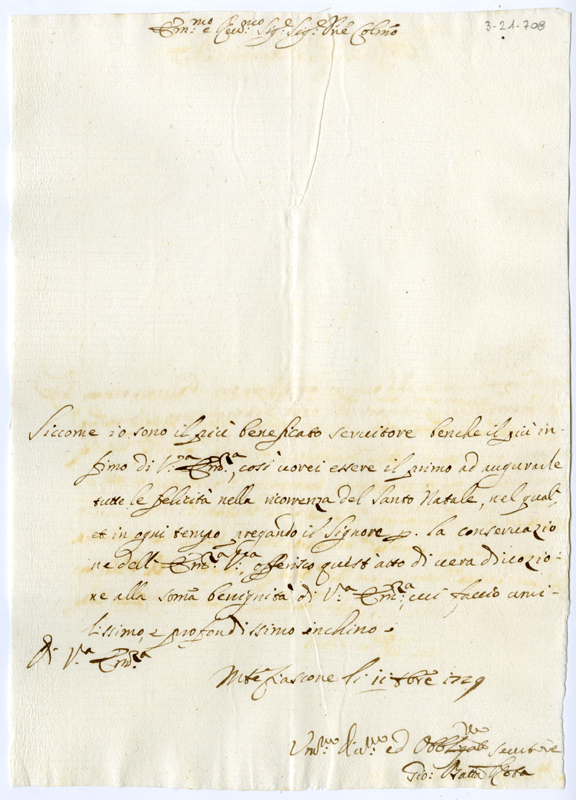 Em.mo e Rev.mo Sig.r Sig.r Pne Colmo
3-21-708
Siccome io sono il più beneficato servitore benche il più in-
fimo di V.ra Em.za, così vorei essere il primo ad augurarle
tutte le felicità nella ricorrenza del Santo Natale, nel quale,
et in ogni tempo pregando il Signore p. la conservazio
ne dell' Em.za V.ra offerisco quest'atto di vera divozio-
ne alla soma benignità di V.ra Em.za, cui faccio umi-
lissimo, e profondissimo inchino.
Di V.a Em.za
Mtefiascone li Xbre 1729
Um.mo Div.mo ed Obblig.mo Servitore
Gio: Batta